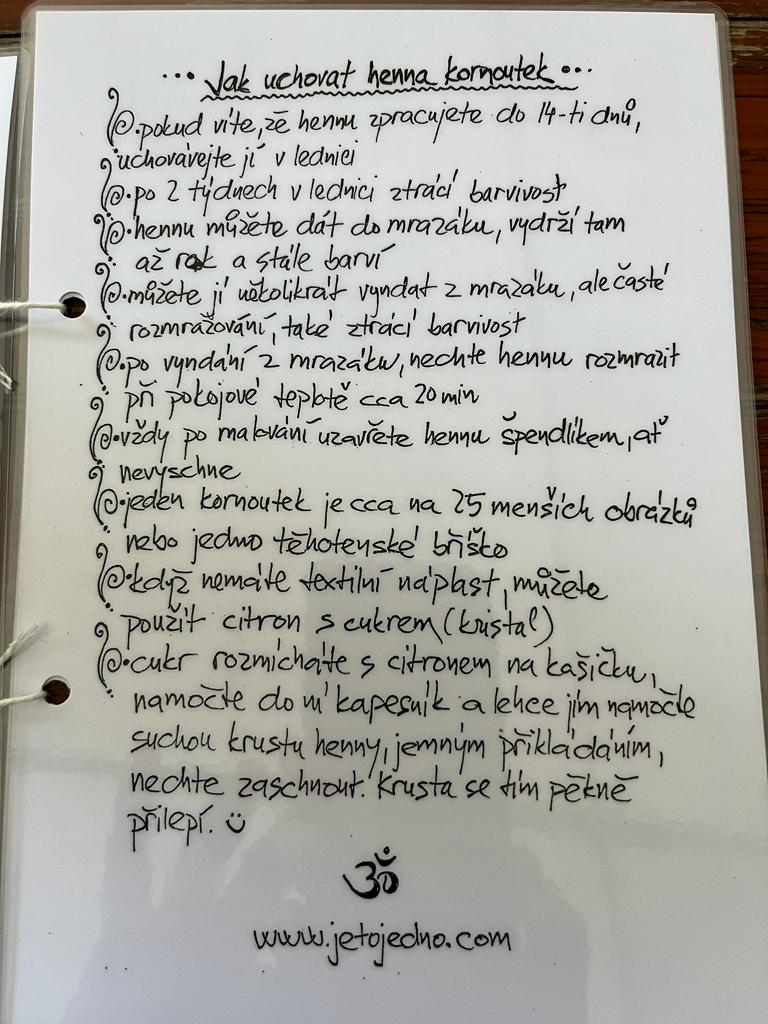 ... Jak uchovat henna kornoutek...
@.pokud víte, že hennu zpracujete do 14-ti dnů,
uchovávejte jí v lednici
@.po 2 týdnech v lednici ztrácí barvivost
@.hennu můžete dát do mrazáku, vydrží tam
až rok a stále barví
@.můžete jí několikrát vyndat z mrazáku, ale časté
rozmražování, také ztrácí barvivost
@.po vyndání z mrazáku, nechte hennu rozmrazit
při pokojové teplotě cca 20 min
@.vždy po malování uzavřete hennu špendlíkem, ať
nevyschne
@.jeden kornoutek je cca na 25 menších obrázků
nebo jedno těhotenské bříško
@.když nemáte textilní náplast, můžete
použít citron s cukrem (kristal)
@.cukr rozmícháte s citronem na kašičku,
namočte do ní kapesník a lehce jím namočte
suchou krustu henny, jemným přikládáním,
nechte zaschnout. Krusta se tím pěkně
přilepí. ☺
ॐ
www.jetojedno.com